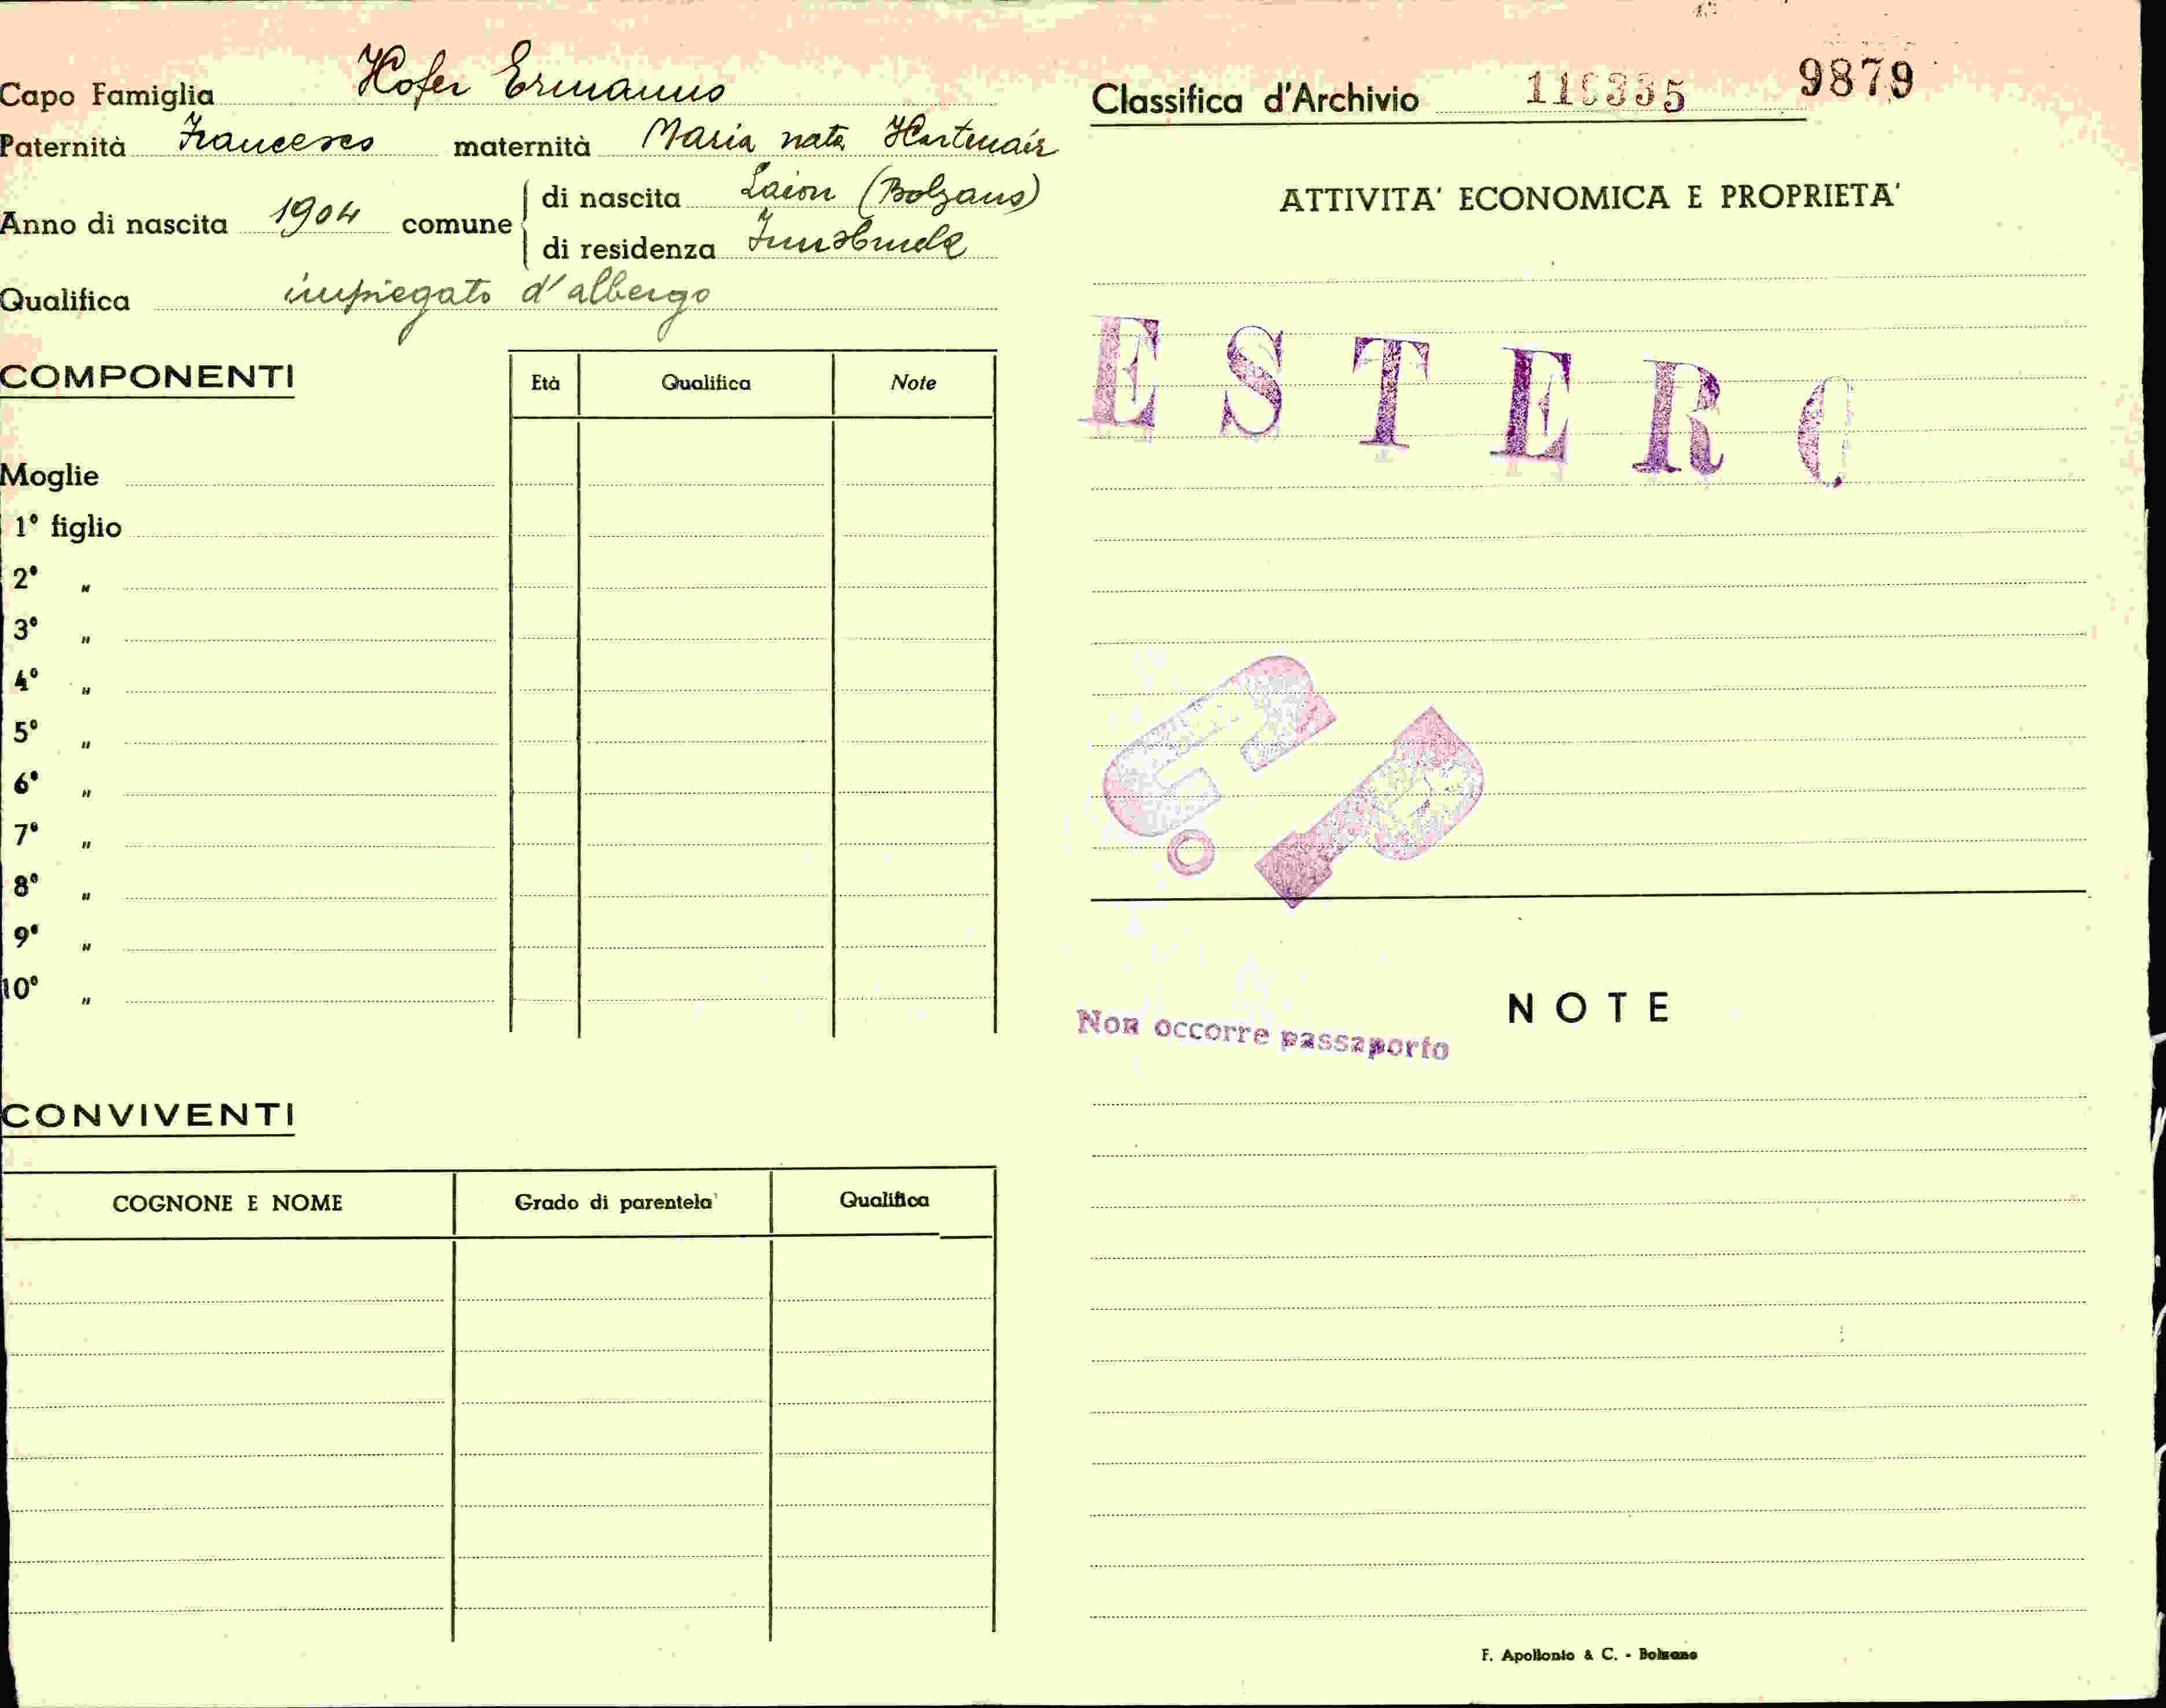 Capo Famiglia Hofer Ermanno
Paternità Francesco maternità Maria nata
Anno di nascita 1904 comune
di nascita Laion (Bolzano)
di residenza Innsbruck
Qualifica impiegato d'albergo
COMPONENTI
Età Qualifica Note
Moglie
1° figlio
2° "
3° "
4° "
5° "
6° "
7° "
8° "
9° "
10° "
CONVIVENTI
COGNONE E NOME Grado di parentela' Qualifica
Classifica d'Archivio 9879
ATTIVITA' ECONOMICA E PROPRIETA'
ESTERO
NOTE
Non occorre passaporto
F. Apollonio & C. - Bolzano